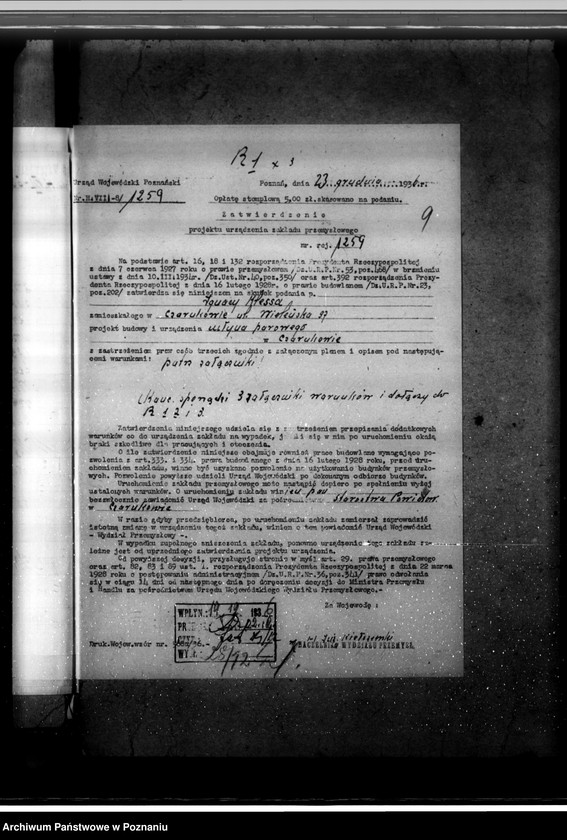 R 1 x 3
Urząd Wojewódzki Poznański
Poznań, dnia 23 grudnia 1936 r.
1259
Opłatę stemplową 5,00 zł. skasowano na podaniu.
9
Zatwierdzenie
projektu urządzenia zakładu przemysłowego
nr. rej. 1259
Na podstawie art. 16, 18 i 132 rozporządzenia Prezydenta Rzeczypospolitej
z dnia 7 czerwca 1927 roku o prawie przemysłowem /Dz.U.R.P.Nr.53,poz.468/ w brzmieniu
ustawy z dnia 10.III.1934r. /Dz.Ust.Nr.40,poz.350/ oraz art.392 rozporządzenia Prezy-
denta Rzeczypospolitej z dnia 16 lutego 1928r. o prawie budowlanem /Dz.U.R.P.Nr.23,
poz.202/ zatwierdza się niniejszem na skutek podania p.
zamieszkałego w Czarnkowie ul. Wieleńska 57
projekt budowy i urządzenia młyna parowego
w Czarnkowie
z zastrzeżeniem praw osób trzecich zgodnie z załączonym planem i opisem pod następują-
cemi warunkami:
3 załączniki warunków i dołączy do
R 1 2 i 3.
Zatwierdzenia niniejszego udziela się z zastrzeżeniem przepisania dodatkowych
warunków co do urządzenia zakładu na wypadek, się w nim po uruchomieniu okażą
braki szkodliwe dla pracujących i otoczenia.
O ile zatwierdzenie niniejsze obejmuje również prace budowlane wymagające po-
zwolenia z art.333. i 334. prawa budowlanego z dnia 16 lutego 1928 roku, przed uru-
chomieniem zakładu, winno być uzyskane pozwolenie na użytkowanie budynków przemysło-
wych. Pozwolenie powyższe udzieli Urząd Wojewódzki po dokonanym odbiorze budynków.
Uruchomienie zakładu przemysłowego może nastąpić dopiero po spełnieniu wyżej
ustalonych warunków. O uruchomieniu zakładu
bezzwłocznie powiadomić Urząd Wojewódzki za pośrednictwem Starostwa Powiatow.
w Czarnkowie
W razie gdyby przedsiębiorca, po uruchomieniu zakładu zamierzał zaprowadzić
istotną zmianę w urządzeniu tegoż zakładu, winien o tem powiadomić Urząd Wojewódzki
- Wydział Przemysłowy -.
W wypadku zupełnego zniszczenia zakładu, ponowne urządzenie tego zakładu za-
leżne jest od uprzedniego zatwierdzenia projektu urządzenia.
Od powyższej decyzji, przysługuje stronie w myśl art. 29. prawa przemysłowego
oraz art. 82, 83 i 89 ust. 1. rozporządzenia Prezydenta Rzeczypospolitej z dnia 22 marca
1928 roku o postępowaniu administracyjnem /Dz.U.R.P.Nr.36,poz.341/ prawo odwołania
się w ciągu 14 dni od następnego dnia po doręczeniu decyzji do Ministra Przemysłu
i Handlu za pośrednictwem Urzędu Wojewódzkiego Wydziału Przemysłowego.-
Za Wojewodę:
WPŁYN.
Druk.Wojew.wzór nr.
NACZELNIK WYDZIAŁU PRZEMYSŁ.
Archiwum Państwowe w Poznaniu